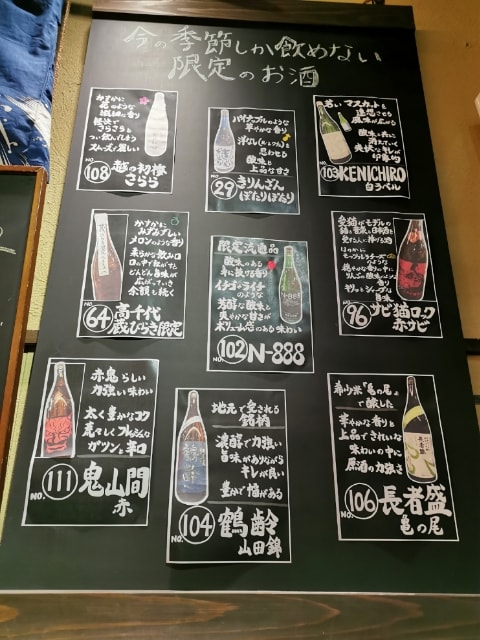 今の季節しか飲めない
限定のお酒
かすかに
花のような
繊細な香り
軽快で
さらさらと
つい飲んでしまう
スムーズで優しい
NO.108 越の初梅
さらら
パイナップルのような
華やかな香り
洋なし(ル・レクチェ)を
思わせる
酸味と
上品な甘さ
NO.29 きりんざん
ぽたりぽたり
若いマスカットを
連想させる
風味が広がる
酸味と共に
消えていく
爽快なキレが
印象的
NO.103 KENICHIRO
白ラベル
かすかに
みずみずしい
メロンのような香り
柔らかな飲み口
口の中で転がすと
どんどん旨味が
広がっていき
余韻も続く
NO.64 高千代
蔵びらき限定
限定流通品
酸味のある
イチゴ・ライチ
のような
芳醇な酸味と
爽やかな甘さが
ボリューム感のある味わい
NO.102 N-888
愛猫がモデルの
ほのかに
モッツァレラチーズ
のような
穏やかな香りの中に
りんごの酸味のような
香り
旨味
NO.96 サビ猫ロック
赤サビ
赤鬼らしい
力強い味わい
太く豊かなコク
荒々しくフルボディな
ガツンと辛口
NO.111 鬼山間
赤
地元で愛される
銘柄
濃醇で力強い
旨味がありながら
キレが良い
豊かで幅がある
NO.104 鶴齢
山田錦
希少米「亀の尾」
で醸した
華やかな香りと
上品できれいな
味わいの中に
原酒の力強さ
NO.106 長者盛
亀の尾